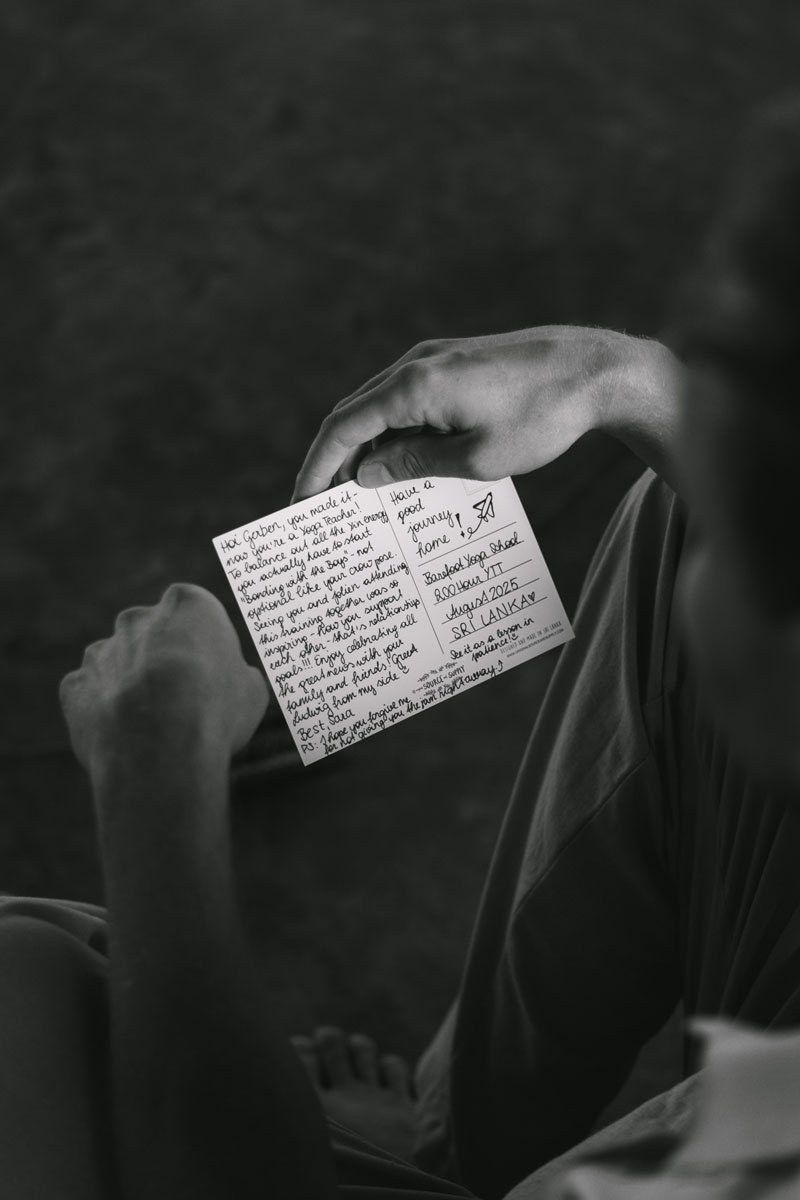 Hoi Gerben, you made it -
now you're a Yoga Teacher!
To balance out all the Yin energy
you actually have to start
"Bonding with the Boys" - not
optional like your crow pose.
Seeing you and Jolien attending
this training together was so
inspiring - How you support
each other - that's relationships
goals!!! Enjoy celebrating all
the great news with your
family and friends! Greet
Ludwig from my side
Best, Lara
PS: I hope you forgive me
for not giving you the jam right away
See it as a lesson in
patience!
Have a
good
journey
home!
Barefoot Yoga School
200 Hour YTT
August 2025
SRI LANKA♥
DESIGNED AND MADE IN SRI LANKA
SOURCE SUPPLY